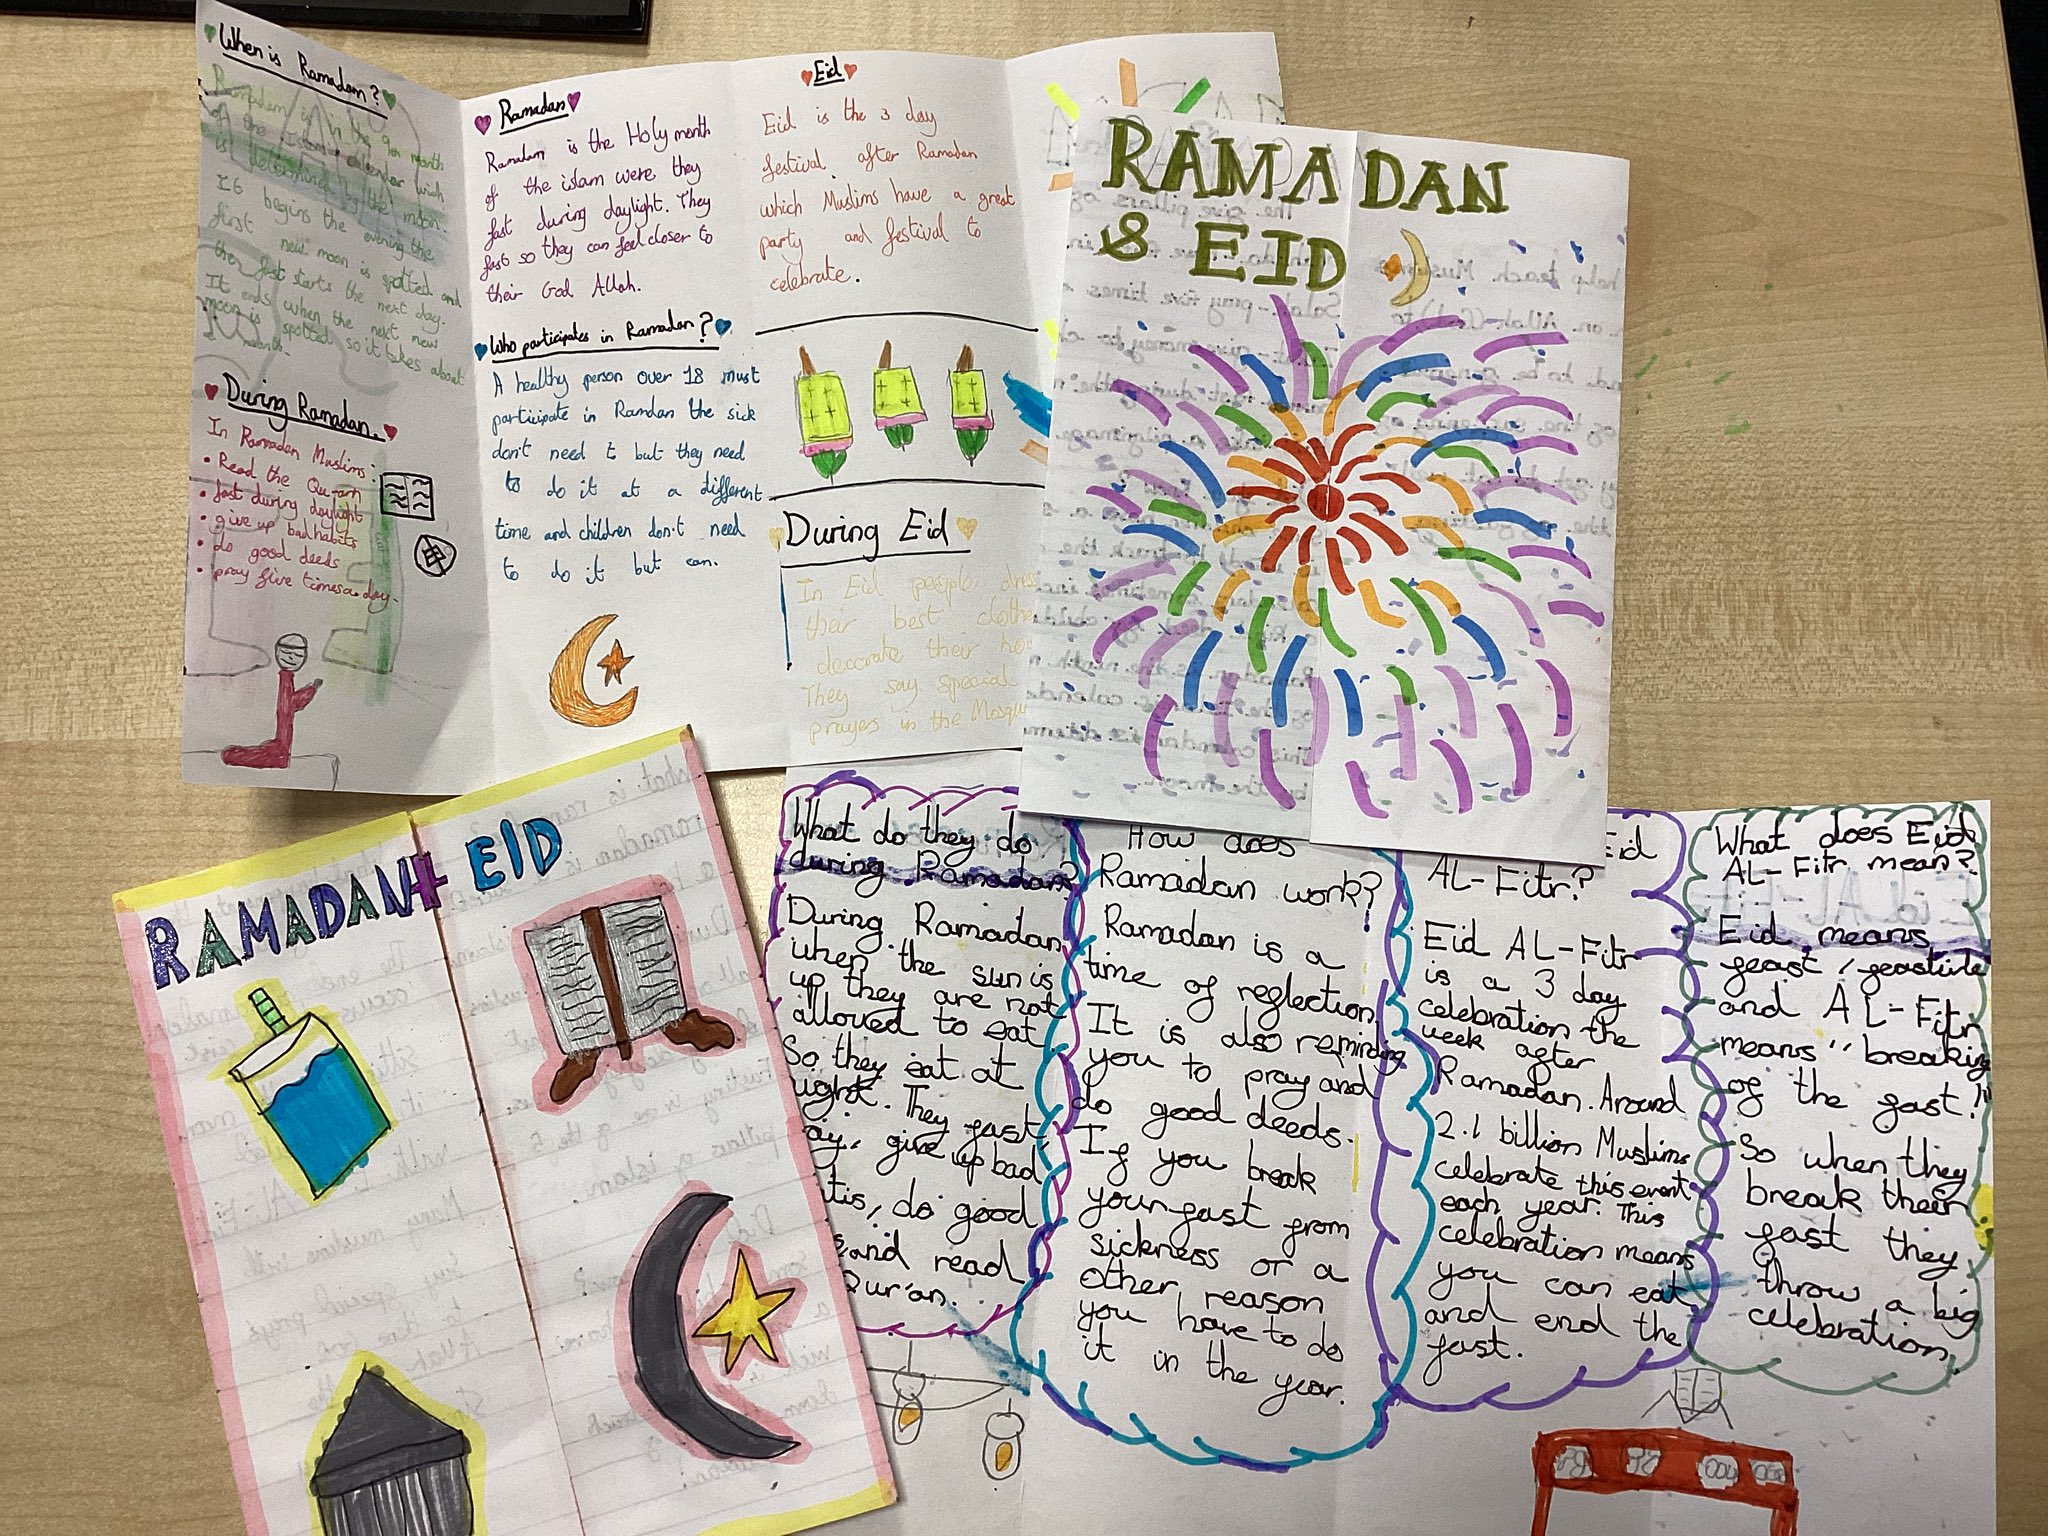 When is Ramadam?
Ramadam is in the 9th month
of the Islam calendar wich
is determined by the moon.
It begins the evening the
first new moon is spotted and
the fast starts the next day.
It ends when the next new
moon is spotted so it takes about
a month.
During Ramadan.
In Ramadan Muslims:
• Read the Qu-arn
• fast during daylight
• give up bad habits
• do good deeds
• pray five times a day.
Ramadan
Ramadam is the Holy month
of the islam were they
fast during daylight. They
fast so they can feel closer to
their God Allah.
Who participates in Ramadan?
A healthy person over 18 must
participate in Ramdan the sick
don't need to but they need
to do it at a different
time and children don't need
to do it but can.
Eid
Eid is the 3 day
festival after Ramadan
which Muslims have a great
party and festival to
celebrate.
During Eid
In Eid people dress
their best clothe
decorate their ho
They say special
prayers in the Mosqu
RAMADAN
& EID
RAMADAN + EID
What do they do
during Ramadan?
During Ramadan,
when the sun is
up they are not
allowed to eat
So they eat at
night. They fast
ay, give up bad
tis, do good
s and read
Qur'an.
How does
Ramadan work?
Ramadan is a
time of reflection
It is also reminding
you to pray and
do good deeds.
If you break
your fast from
sickness or a
other reason
you have to do
it in the year.
Eid
AL-Fitr?
Eid AL-Fitr
is a 3 day
celebration the
week after
Ramadan. Around
2.1 billion Muslims
celebrate this event
each year. This
celebration means
you can eat
and end the
fast.
What does Eid
AL-Fitr mean?
Eid means
feast/feastivle
and AL-Fitr
means "breaking
of the fast!"
So when they
break their
fast they
throw a big
celebration